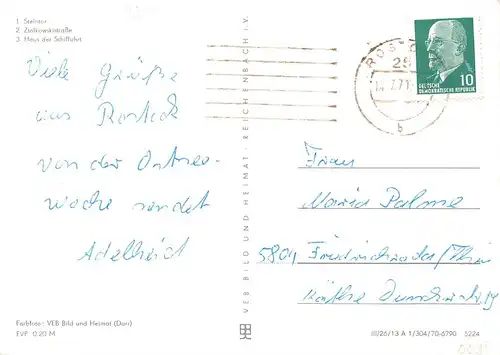 1. Steintor
2. Ziolkowskistraße
3. Haus der Schiffahrt
Viele Grüße
aus Rostock
von der Ostsee-
woche sendet
Adelheid
Farbfoto: VEB Bild und Heimat (Darr)
EVP 0.20 M
VEB BILD UND HEIMAT · REICHENBACH i. V.
ROSTOCK
25
7.71
b
10
DEUTSCHE
DEMOKRATISCHE REPUBLIK
Frau
Maria Palme
5804 Friedrichroda/Thür
Käthe
III/26/13 A 1/304/70-6790 5224